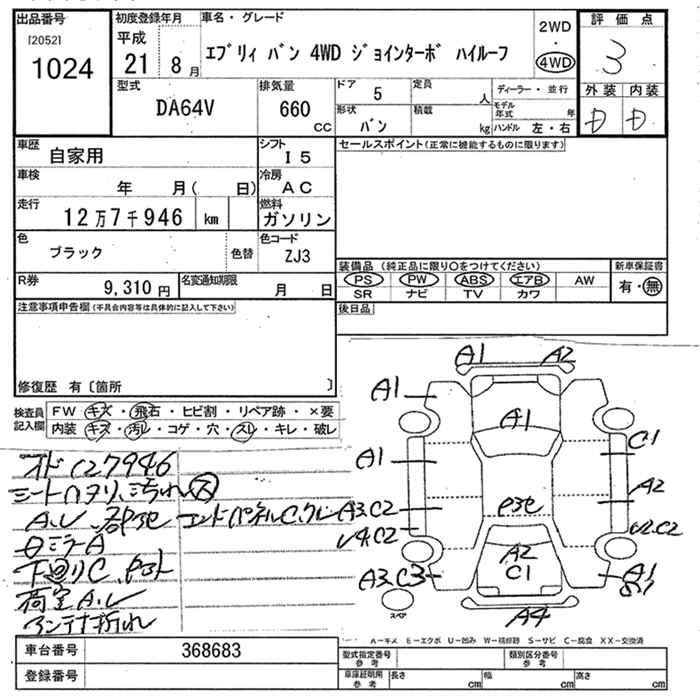 出品番号
[2052]
1024
初度登録年月
平成
21 8 月
車名・グレード
エブリィ バン 4WD ジョインターボ ハイルーフ
2WD
・
4WD
評価点
3
外装 内装
D D
型式
DA64V
排気量
660
CC
ドア
5
定員
人
形状
バン
積載
kg
ディーラー・並行
モデル年式 年
ハンドル 左・右
車歴
自家用
シフト
I5
車検
年 月( 日)
冷房
AC
走行
12万7千946 km
燃料
ガソリン
色
ブラック
色替
色コード
ZJ3
R券
9,310 円
名変通知期限
月 日
セールスポイント(正常に機能するものに限ります)
装備品 (純正品に限り○をつけてください)
PS PW ABS エアB AW
SR ナビ TV カワ
新車保証書
有・無
後日品
注意事項申告欄(不具合内容等は具体的に記入して下さい)
修復歴 有〔箇所 〕
検査員記入欄
FW キズ・飛石・ヒビ割・リペア跡・×要
内装 キズ・汚レ・コゲ・穴・スレ・キレ・破レ
オド127946
シートヘタリ、汚れ 大
A.U 部凹 エンドパネルC.クレ
ミラーA
下回りC
荷室A.U
アンテナ折れ
A1 A2
A1
A1
A1
C1
A2
A3.C2
U4.C2
P3
U2.C2
A2
C1
A3.C3
A1
S1
A4
スペア
A－キズ E－エクボ U－凹み W－補修跡 S－サビ C－腐食 XX－交換済
車台番号
368683
登録番号
型式指定番号
参考
類別区分番号
参考
車庫証明用
参考
長さ cm
幅 cm
高さ cm